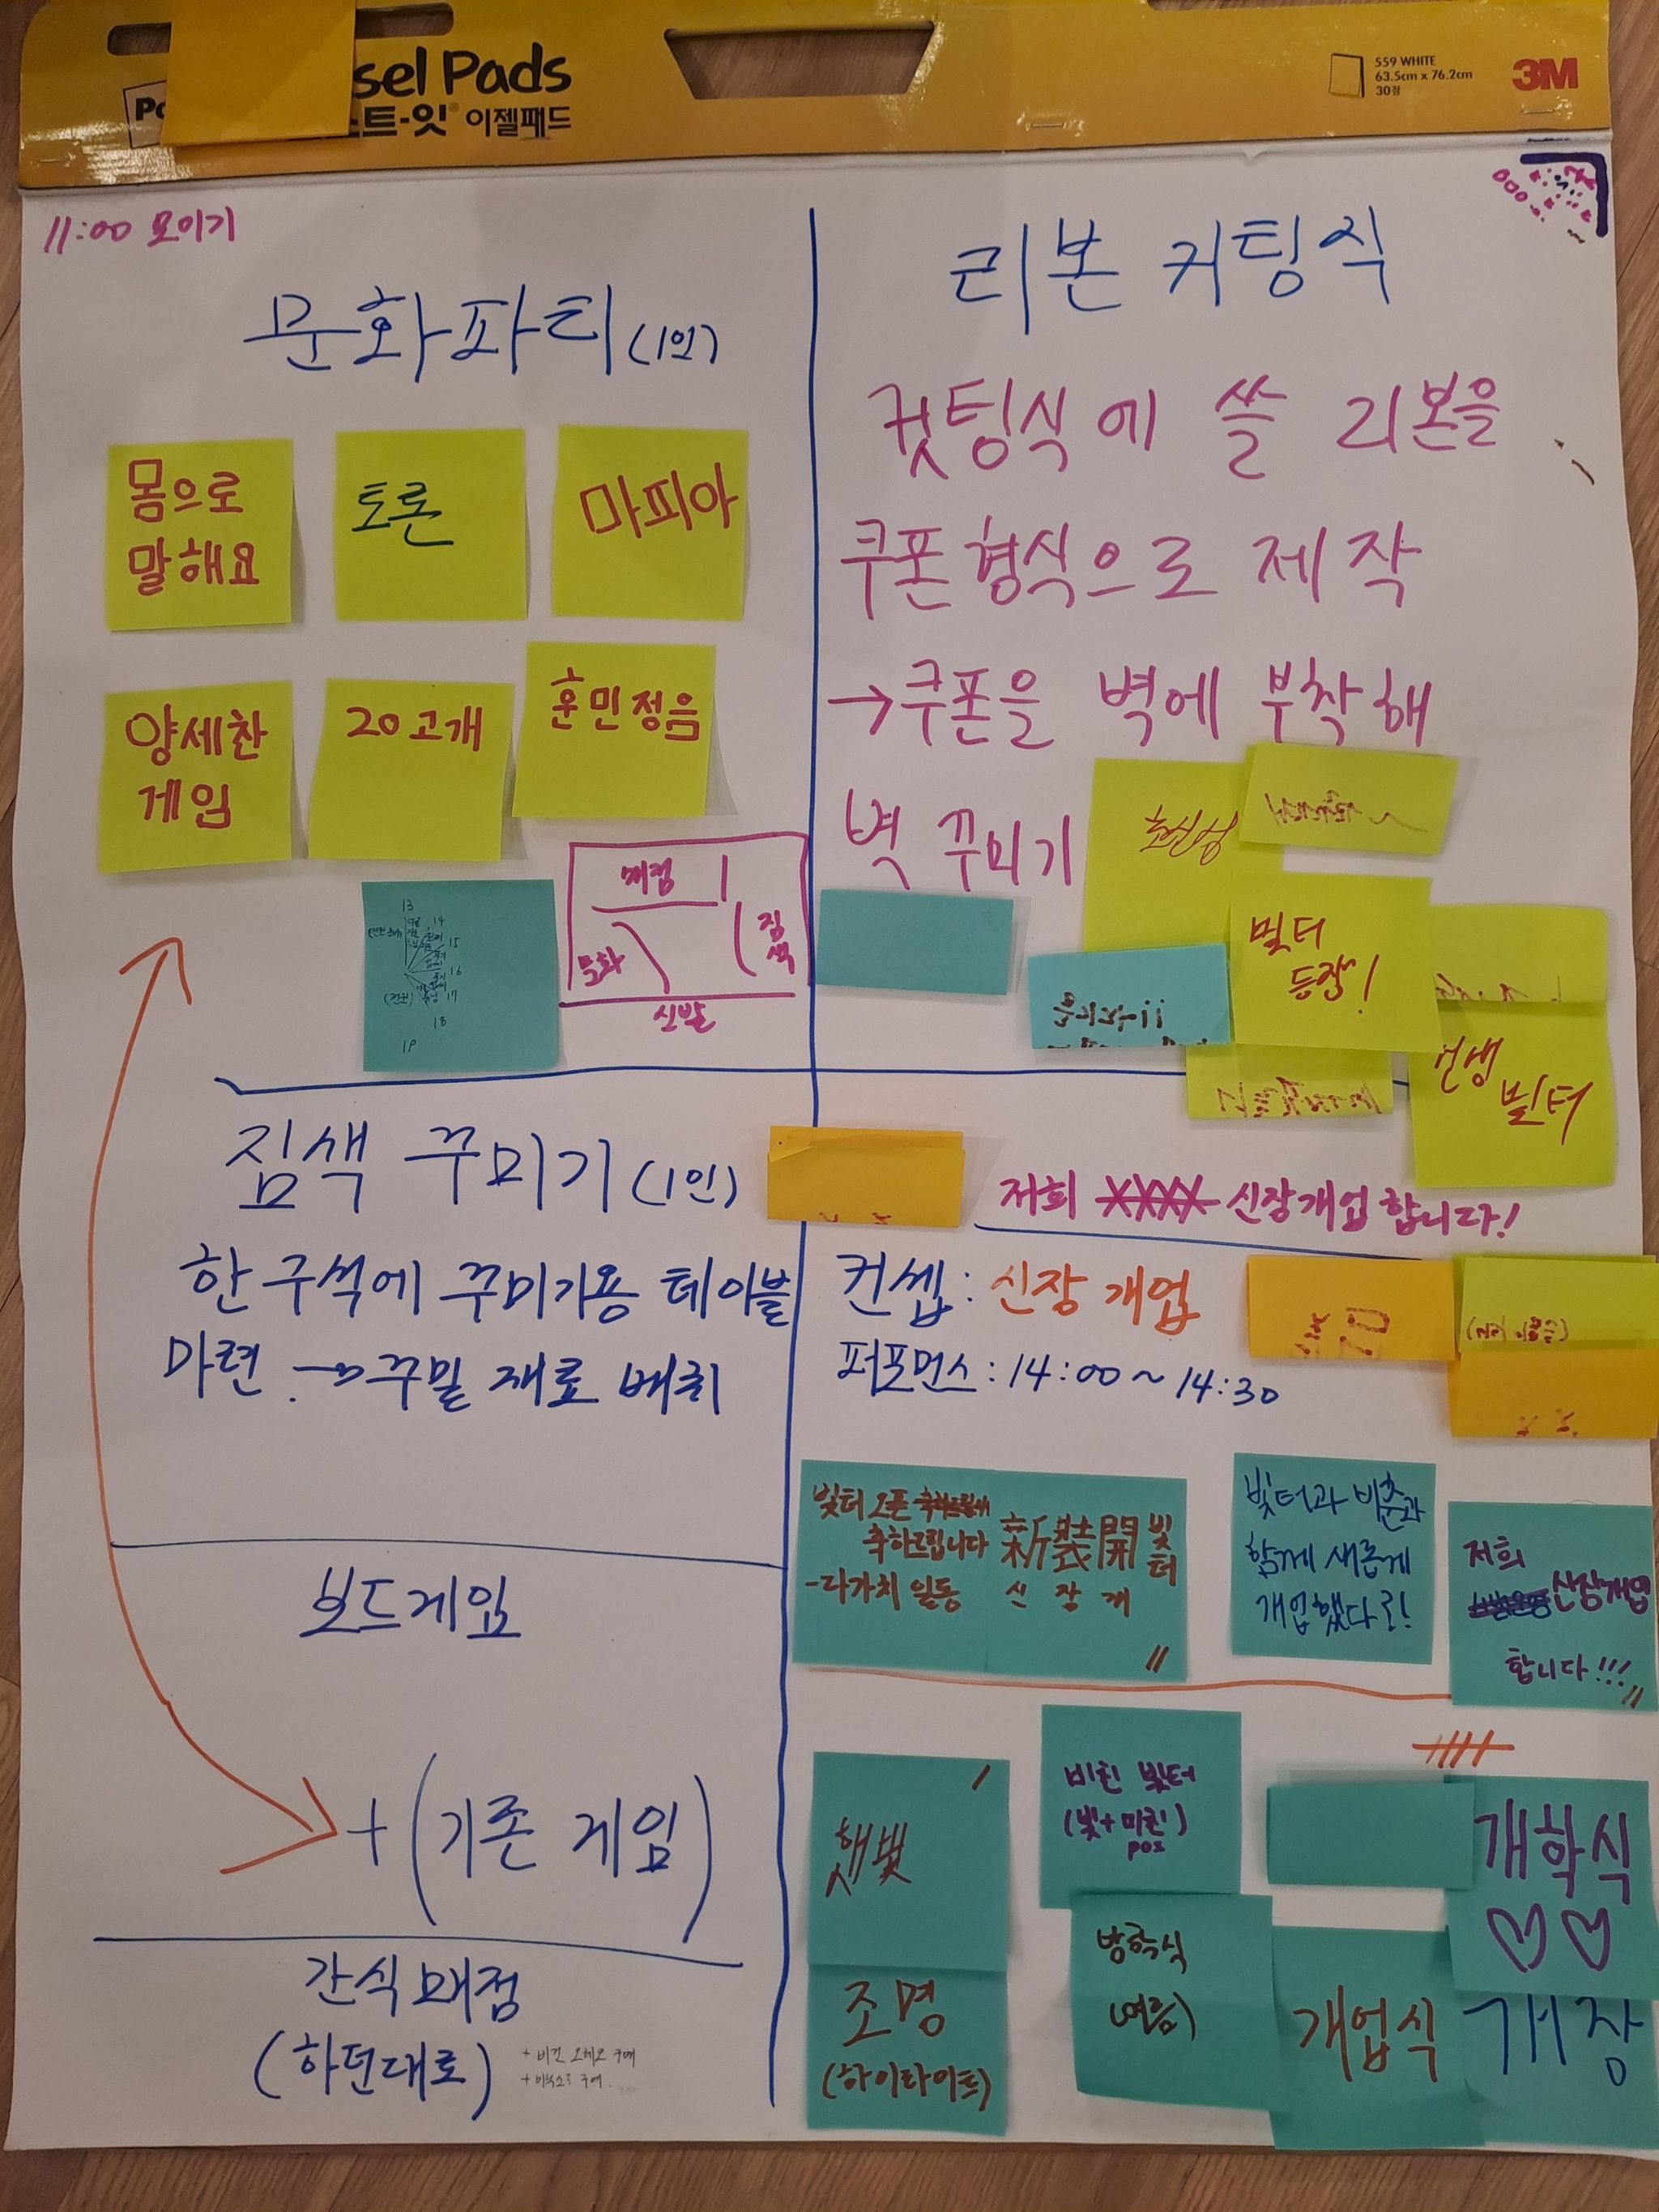 sel Pads
트-잇® 이젤패드
559 WHITE
63.5cm x 76.2cm
30장
3M
11:00 모이기
문화파티 (1인)
몸으로
말해요
토론
마피아
양세찬
게임
20고개
훈민정음
13
14
15
16
17
18
19
매점
문화
짐색
신발
짐색 꾸미기 (1인)
한 구석에 꾸미기용 테이블
마련 → 꾸밀 재료 배치
보드게임
+ (기존 게임)
간식매점
(하던대로)
+ 비건 오레오 구매
리본 커팅식
컷팅식에 쓸 리본을
쿠폰형식으로 제작
→ 쿠폰을 벽에 부착해
벽 꾸미기
빛터
등장!
빛터
저희 신장개업 합니다!
컨셉 : 신장 개업
퍼포먼스 : 14:00 ~ 14:30
빛터 오픈
축하드립니다
-다가치 일동
新装開 빛터
신 장 개
빛터과 비춘과
함께 새롭게
개업했다!
저희
신장개업
합니다!!!
햇빛
조명
(하이라이트)
비친 빛터
(빛+미친)
pos
방학식
(여름)
개업식
개학식
♡♡
개장